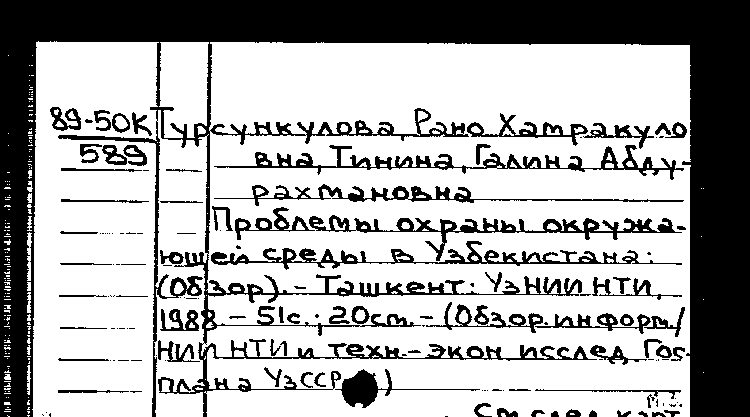 89-50К Турсункулова, Рано Хамракуло
589 вна, Тинина, Галина Абду-
рахмановна
Проблемы охраны окружа-
ющей среды в Узбекистана:
(Обзор).- Ташкент: УзНИИНТИ,
1988.- 51с.; 20см.- (Обзор.информ/
НИИНТИ и техн.-экон исслед. Гос-
плана УзССР )
См.след.карт.